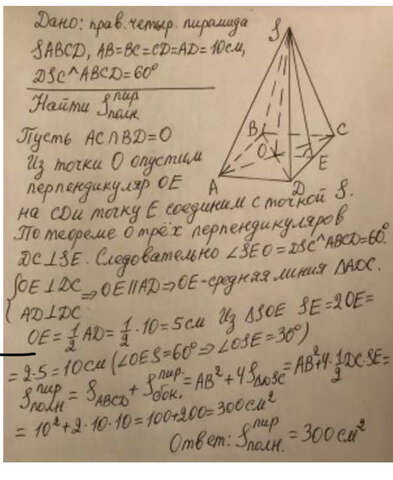 Дано: прав. четыр. пирамида
SABCD, AB=BC=CD=AD=10см,
DSC^ABCD=60°
Найти S пир полн.
S
B
C
O
E
A
D
Пусть AC∩BD=O
Из точки O опустим
перпендикуляр OE
на CD и точку E соединим с точкой S.
По теореме о трёх перпендикулярах
DC⊥SE. Следовательно ∠SEO=DSC^ABCD=60°.
{OE⊥DC
AD⊥DC ⇒OE∥AD⇒OE-средняя линия ΔADC.
OE=1/2 AD=1/2·10=5см Из ΔSOE SE=2OE=
=2·5=10см (∠OES=60°⇒∠OSE=30°)
S пир полн. = S ABCD + S пир. бок. = AB²+4S ΔDSC = AB²+4·1/2 DC·SE=
=10²+2·10·10=100+200=300см²
Ответ: S пир полн. =300см²